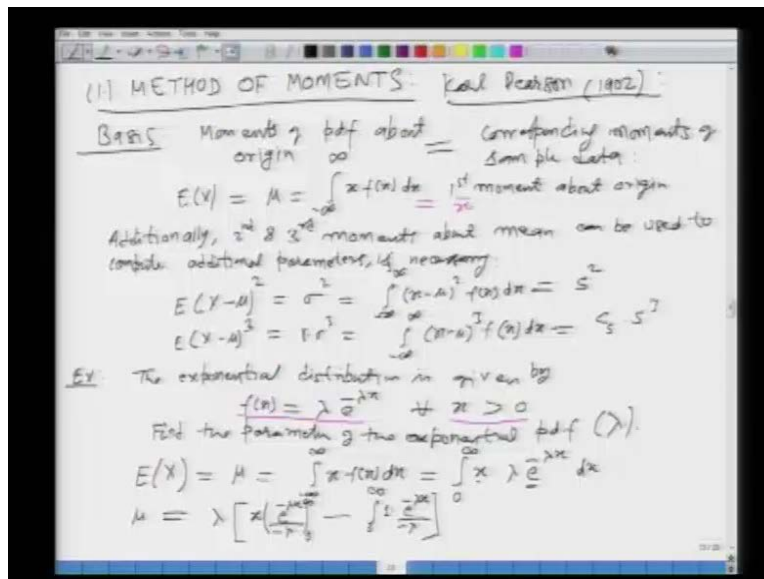 File Edit View Insert Actions Tools Help
(1) METHOD OF MOMENTS: Karl Pearson (1902):
Basis Moments of pdf about origin = corresponding moments of sample data:
E(X) = μ = ∫_{-∞}^{∞} x f(x) dx = 1st moment about origin
x̄
Additionally, 2nd & 3rd moments about mean can be used to
compute additional parameters, if necessary.
E(X-μ)^2 = σ^2 = ∫_{-∞}^{∞} (x-μ)^2 f(x) dx = S^2
E(X-μ)^3 = γσ^3 = ∫_{-∞}^{∞} (x-μ)^3 f(x) dx = C_s S^3
Ex: The exponential distribution is given by
f(x) = λ e^{-λx} ∀ x > 0
Find the parameter of the exponential pdf (λ).
E(X) = μ = ∫_{-∞}^{∞} x f(x) dx = ∫_{0}^{∞} x λ e^{-λx} dx
μ = λ [x (e^{-λx}/-λ)_{0}^{∞} - ∫_{0}^{∞} 1· e^{-λx}/-λ]